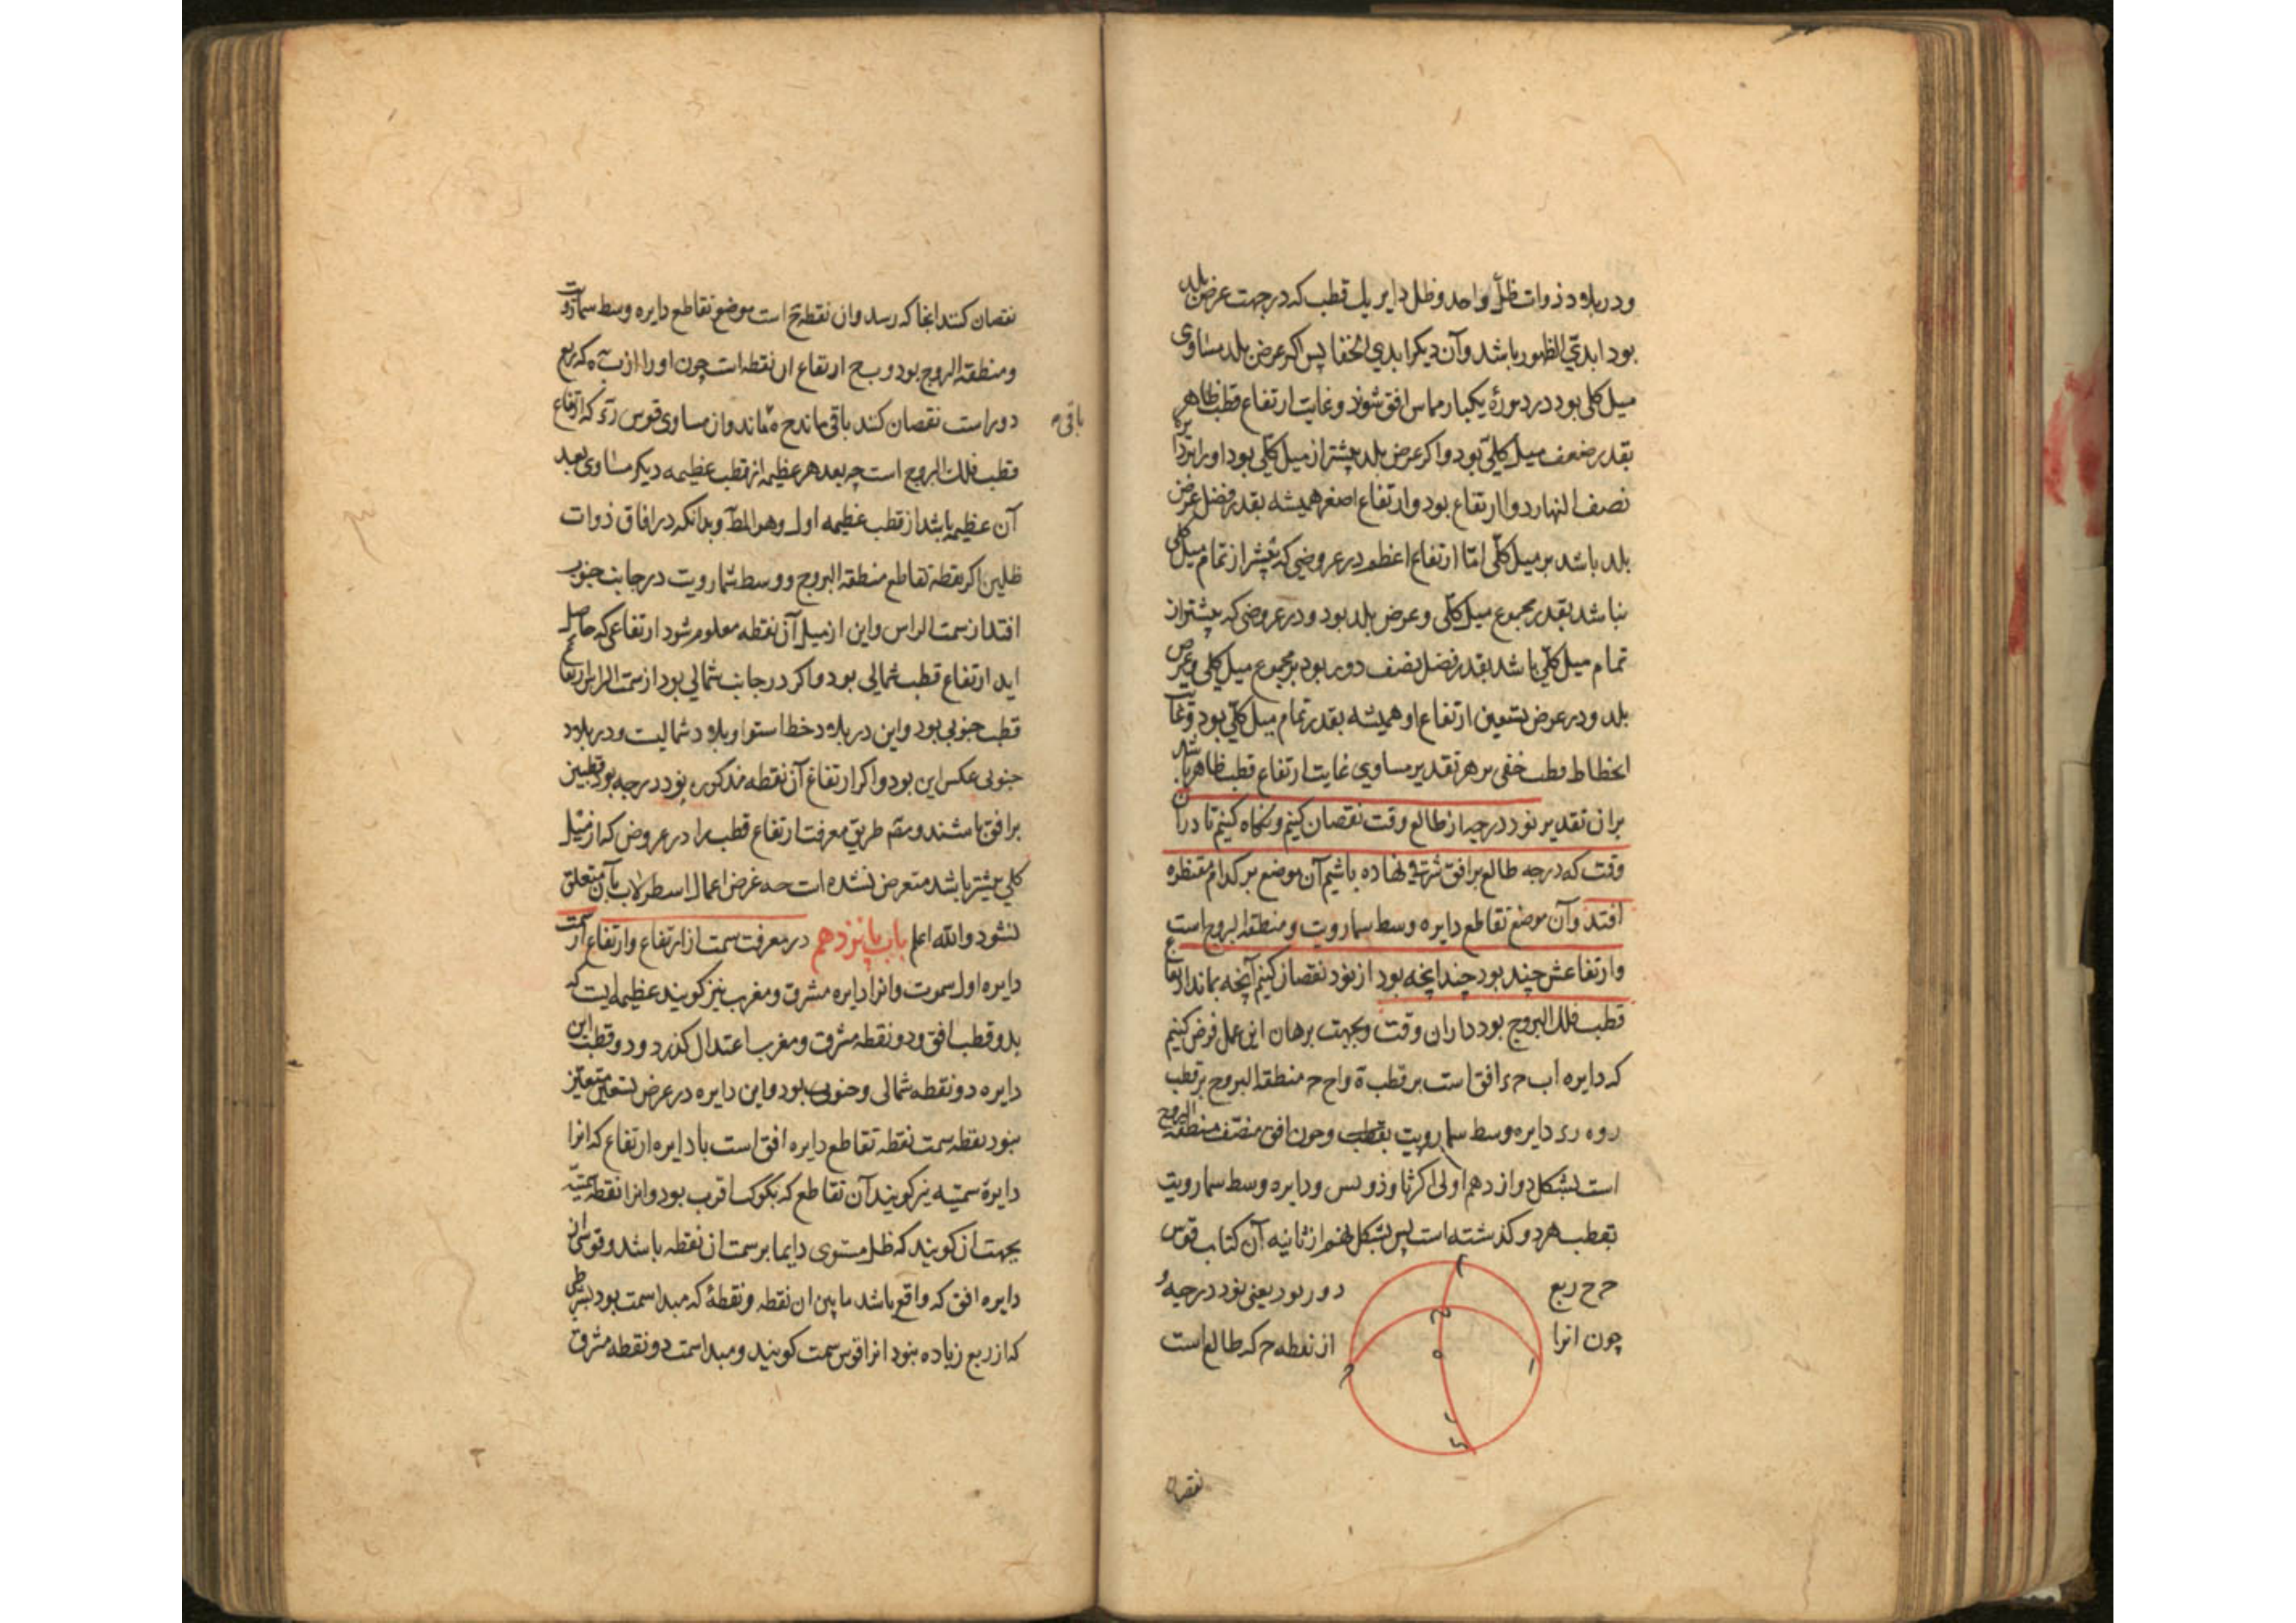 ودر بلاد ذوات ظل واحد وظل دایر یك قطب که در جهت عرض بلد
بود ابدی الظهور باشد وآن دیکر ابدی الخفا پس اکر عرض بلد مساوی
میل کلی بود در دورهٔ یکبار مماس افق شوند وغایت ارتفاع قطب ظاهر
بقدر ضعف میل کلی بود واکر عرض بلد بیشتر از میل کلی بود اورا بر دایره
نصف النهار دو ارتفاع بود وارتفاع اصغر همیشه بقدر فضل عرض
بلد باشد بر میل کلی امّا ارتفاع اعظم در عروضی که بیشتر از تمام میل کلی
نباشد بقدر مجموع میل کلی وعرض بلد بود ودر عروضی که بیشتر از
تمام میل کلی باشد بقدر فضل نصف دور بود بر مجموع میل کلی وعرض
بلد ودر عرض تسعین ارتفاع او همیشه بقدر تمام میل کلی بود وغایت
انحطاط قطب خفی بر هر تقدیر مساوی غایت ارتفاع قطب ظاهر باشد
بران تقدیر نود درجه از طالع وقت نقصان کنیم ونکاه کنیم تا در آن
وقت که درجه طالع بر افق شرقی نهاده باشیم آن موضع بر کدام مقنطره
افتد وآن موضع تقاطع دایره وسط سما رویت ومنطقه البروج است
وارتفاعش چند بود چندانچه بود از نود نقصان کنیم آنچه بماند ارتفاع
قطب فلك البروج بود داران وقت وبجهت برهان این عمل فرض کنیم
که دایره اب ح ء افق است بر قطب ه واح ح منطقه البروج بر قطب
ر وه ر ء دایره وسط سما رویت بقطب وچون افق منصف منطقه البروج
است بشکل دوازدهم اولی اکر ثاوذوسیوس ودایره وسط سما رویت
بقطب هر دو کذشته است پس بشکل نهم از ثانیه آن کتاب قوس
ح ح ربع دور بود یعنی نود درجه و
چون انرا از نقطه ح که طالع است
نقصان
نقصان کنند انجا که رسد وان نقطه ح است موضع تقاطع دایره وسط سما رویت
ومنطقه البروج بود و ب ح ارتفاع ان نقطه است چون اورا از ب ه که ربع
دور است نقصان کند باقی ماند ح ه ماند وان مساوی قوس ر ء که ارتفاع
باقی
قطب فلك البروج است چه بعد هر عظیمه از قطب عظیمه دیکر مساوی بعد
آن عظیمه باشد از قطب عظیمه اول وهو المط وبدانکه در افاق ذوات
ظلین اکر نقطه تقاطع منطقه البروج ووسط سما رویت در جانب جنوب
افتد از سمت الراس واین از میل آن نقطه معلوم شود ارتفاعی که حاصل
اید ارتفاع قطب شمالی بود واکر در جانب شمالی بود از سمت الراس ارتفاع
قطب جنوبی بود واین در بلاد خط استوا وبلاد شمالیست ودر بلاد
جنوبی عکس این بود واکر ارتفاع آن نقطه مذکوره نود درجه بود قطبین
بر افق باشند ومص طریق معرفت ارتفاع قطب را در عروض که از میل
کلی بیشتر باشد متعرض نشده است چه غرض اعمال اسطرلاب بآن متعلق
نشود والله اعلم باب پانزدهم در معرفت سمت از ارتفاع وارتفاع از سمت
دایره اول سموت وانرا دایره مشرق ومغرب نیز کویند عظیمه ایست که
بدو قطب افق ودو نقطه مشرق ومغرب اعتدال کذرد ودو قطب این
دایره دو نقطه شمالی وجنوبی بود واین دایره در عرض تسعین متعین
نبود نقطه سمت نقطه تقاطع دایره افق است با دایره ارتفاع که انرا
دایرهٔ سمتیه نیز کویند آن تقاطع که بکوکب اقرب بود وانرا نقطه سمتیه
بجهت ان کویند که ظل مستوی دایما بر سمت ان نقطه باشد وقوسی از
دایره افق که واقع باشد مابین ان نقطه ونقطهٔ که مبدا سمت بود بشرطی
که از ربع زیاده نبود انرا قوس سمت کویند ومبدا سمت دو نقطه مشرق